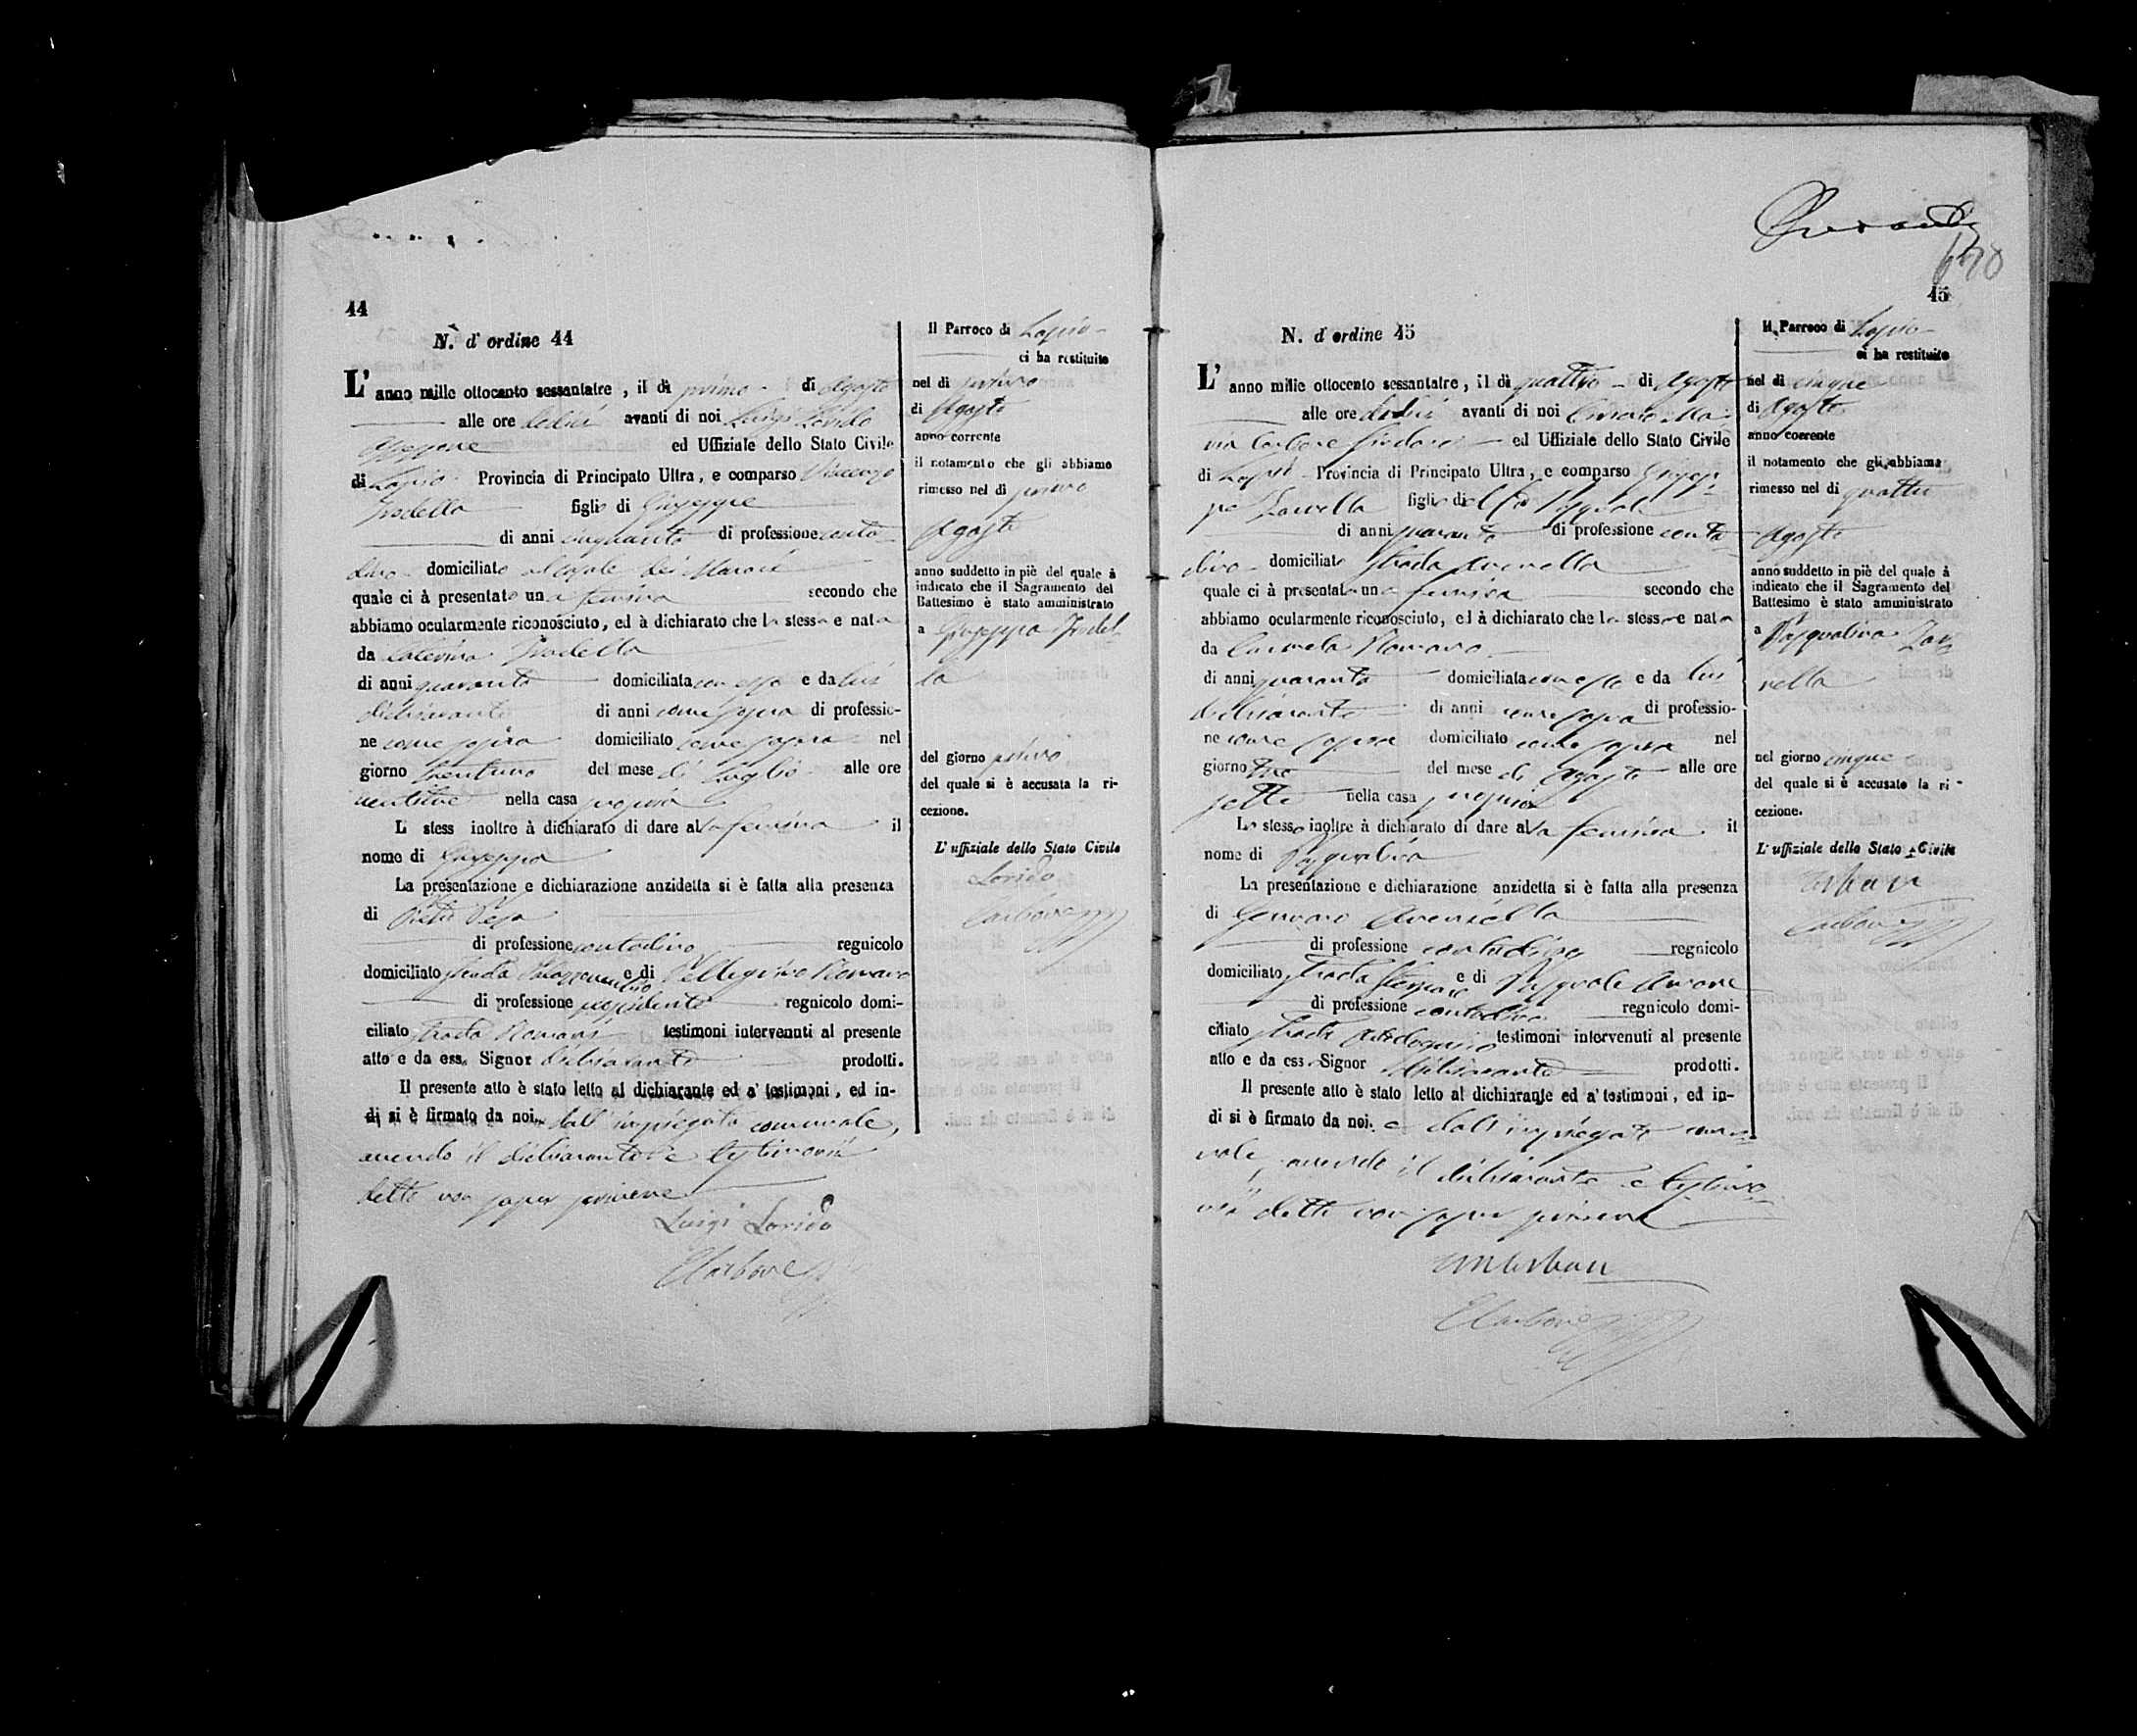 44
N. d' ordine 44
L' anno mille ottocento sessantatre, il di primo di Agosto
alle ore dodici avanti di noi Luigi Lorido
ed Uffiziale dello Stato Civile
di Lapio Provincia di Principato Ultra, e comparso Vincenzo
figlio di Giuseppe
di anni cinquanta di professione conta-
dino domiciliato
quale ci à presentato una femina secondo che
abbiamo ocularmente riconosciuto, ed à dichiarato che la stessa e nata
da Caterina
di anni quaranta domiciliata con esso e da lui
dichiarante di anni come sopra di professio-
ne come sopra domiciliato come sopra nel
giorno trentuno del mese di Luglio alle ore
nella casa propria
L stess inoltre à dichiarato di dare alla femina il
nome di Giuseppa
La presentazione e dichiarazione anzidetta si è fatta alla presenza
di
di professione contadino regnicolo
domiciliato strada e di Pellegrino Romano
di professione possidente regnicolo domi-
ciliato strada Romani testimoni intervenuti al presente
atto e da ess. Signor dichiarante prodotti.
Il presente atto è stato letto al dichiarante ed a' testimoni, ed in-
di si è firmato da noi dall' impiegato comunale,
avendo il dichiarante e testimonii
detto non saper scrivere
Luigi Lorido
Carbone
Il Parroco di Lapio
ci ha restituito
nel di primo
di Agosto
anno corrente
il notamento che gli abbiamo
rimesso nel di primo
Agosto
anno suddetto in piè del quale à
indicato che il Sagramento del
Battesimo è stato amministrato
a Giuseppa
del giorno primo
del quale si è accusata la ri-
cezione.
L' uffiziale dello Stato Civile
Lorido
Carbone
45
N. d' ordine 45
L' anno mille ottocento sessantatre, il di quattro di Agosto
alle ore dodici avanti di noi Ciriaco Ma-
ria Carbone Sindaco ed Uffiziale dello Stato Civile
di Lapio Provincia di Principato Ultra, e comparso Giusep-
pe figlio del fu Pasquale
di anni quaranta di professione conta-
dino domiciliato strada
quale ci à presentato una femina secondo che
abbiamo ocularmente riconosciuto, ed à dichiarato che la stessa e nata
da Carmela Romano
di anni quaranta domiciliata con esso e da lui
dichiarante di anni come sopra di professio-
ne come sopra domiciliato come sopra nel
giorno tre del mese di Agosto alle ore
sette nella casa propria
Lo stesso inoltre à dichiarato di dare alla femina il
nome di Pasqualina
La presentazione e dichiarazione anzidetta si è fatta alla presenza
di Gennaro
di professione contadino regnicolo
domiciliato strada e di Pasquale
di professione contadino regnicolo domi-
ciliato strada testimoni intervenuti al presente
atto e da ess. Signor dichiarante prodotti.
Il presente atto è stato letto al dichiarante ed a' testimoni, ed in-
di si è firmato da noi. e dall' impiegato comu-
nale, avendo il dichiarante e testimo-
nii detto non saper scrivere
Carbone
Il Parroco di Lapio
ci ha restituito
nel di cinque
di Agosto
anno corrente
il notamento che gli abbiamo
rimesso nel di quattro
Agosto
anno suddetto in piè del quale à
indicato che il Sagramento del
Battesimo è stato amministrato
a Pasqualina
nel giorno cinque
del quale si è accusato la ri-
cezione.
L' uffiziale dello Stato Civile
Carbone